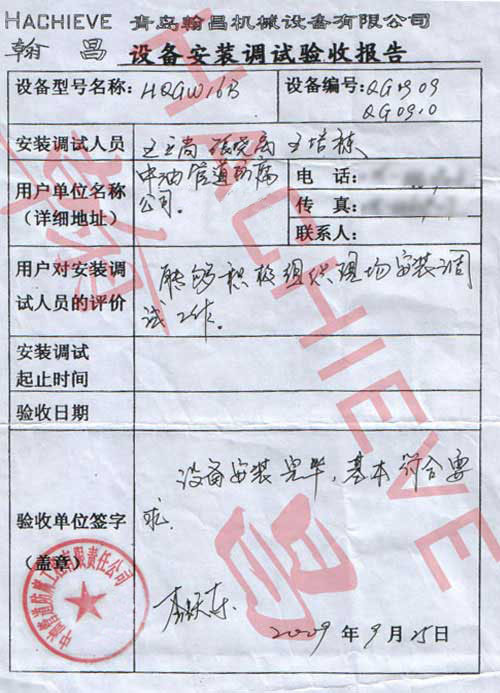 HACHIEVE 青岛翰昌机械设备有限公司
翰昌 设备安装调试验收报告
设备型号名称: HQGW16B 设备编号: QG0909
QG0910
安装调试人员
用户单位名称 中油管道防腐
(详细地址) 公司.
电 话:
传 真:
联系人:
用户对安装调 能够积极组织现场安装调
试人员的评价 试工作.
安装调试
起止时间
验收日期
设备安装完毕,基本符合要
求.
验收单位签字
(盖章)
2009 年 9 月 25 日
HACHIEVE
翰昌